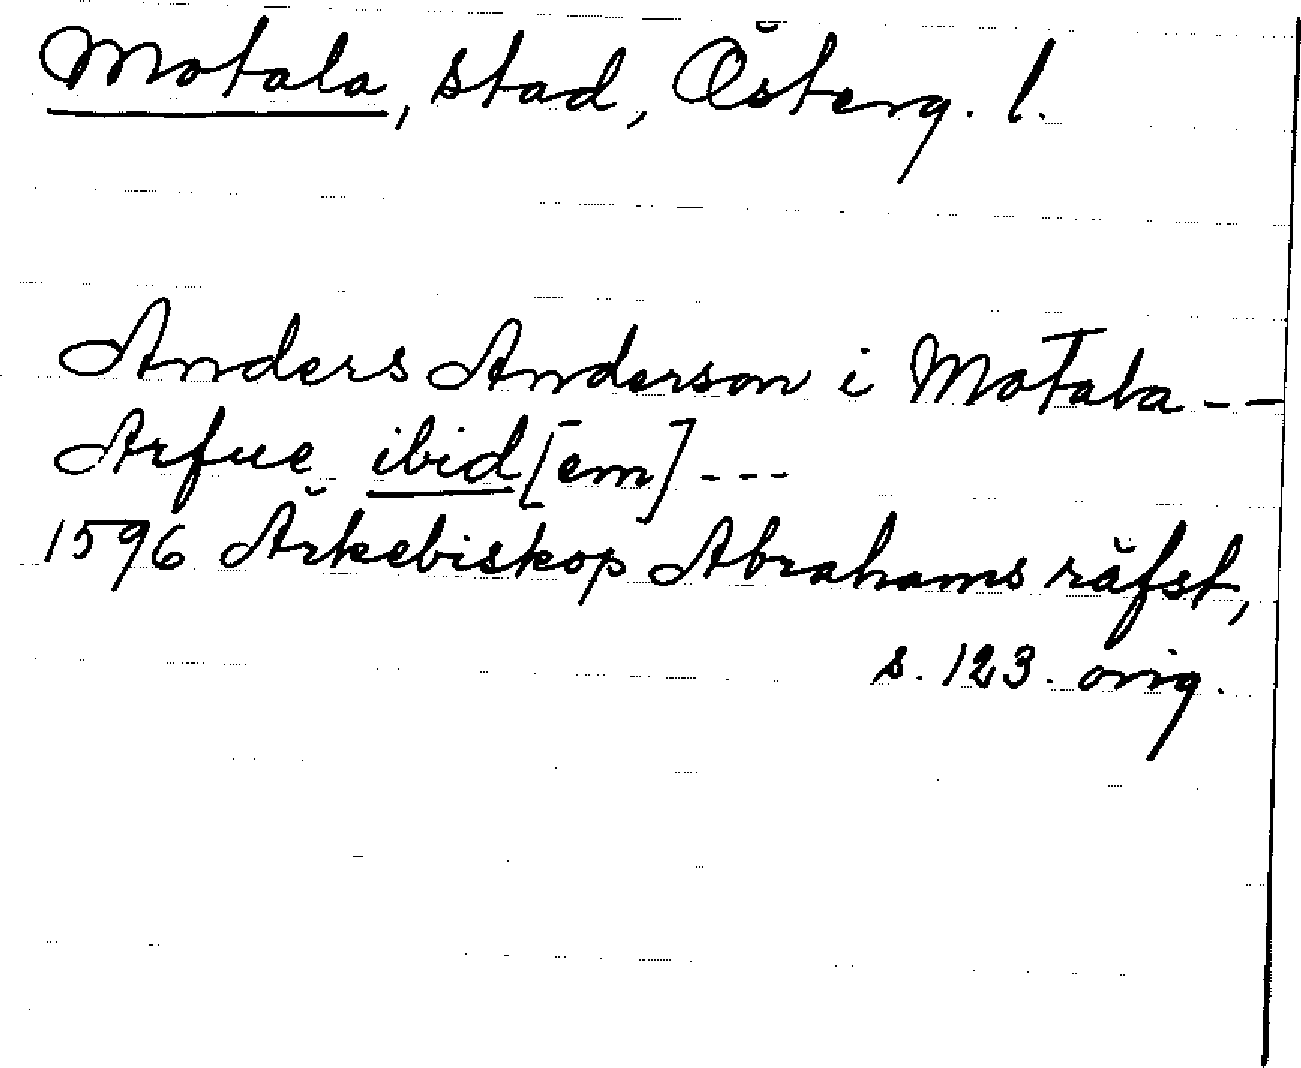 Motala, stad, Österg. l.
Anders Anderson i Motala - -
Arfue ibid[em] - - -
1596 Ärkebiskop Abrahams räfst,
s. 123. orig.